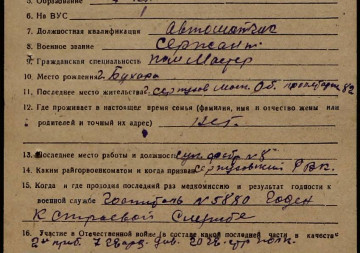 5. Образование
6. На ВУС
7. Должностная квалификация Автоматчик
8. Военное звание Сержант
9. Гражданская специальность пом Мастер
10. Место рождения г. Бухара
11. Последнее место жительства г. Серпухов Мос. Об.
12. Где проживает в настоящее время семья (фамилия, имя и отчество жены или
родителей и точный их адрес) нет
13. Последнее место работы и должность
14. Каким райгорвоенкоматом и когда призван Серпуховский РВК.
15. Когда и где проходил последний раз медкомиссию и результат годности к
военной службе Госпиталь № 5880 Годен
к строевой службе
16. Участие в Отечественной войне (в составе какой последней части и в качестве
7 Гвард. див. 20 Гв. стр полк.